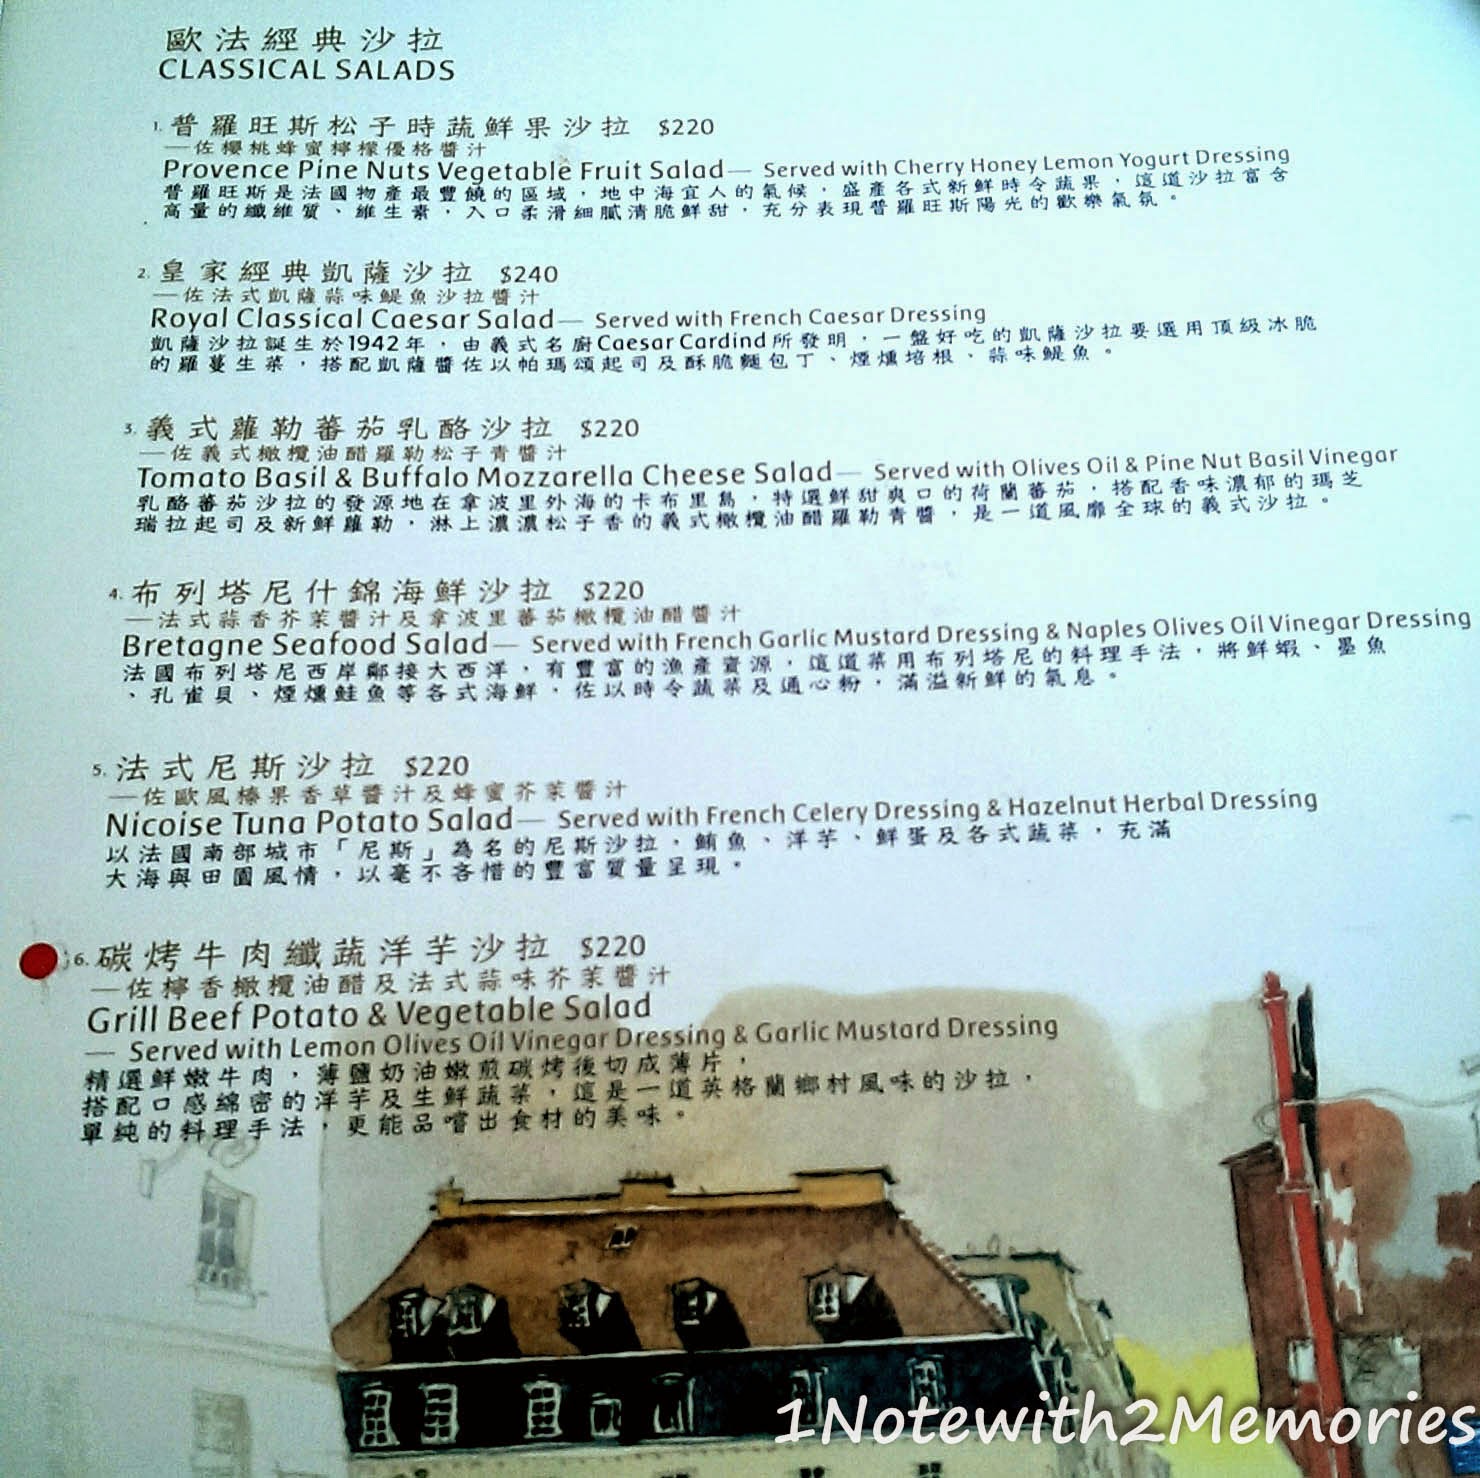 歐法經典沙拉
CLASSICAL SALADS
1. 普羅旺斯松子時蔬鮮果沙拉 $220
—佐櫻桃蜂蜜檸檬優格醬汁
Provence Pine Nuts Vegetable Fruit Salad— Served with Cherry Honey Lemon Yogurt Dressing
普羅旺斯是法國物產最豐饒的區域，地中海宜人的氣候，盛產各式新鮮時令蔬果，這道沙拉富含
高量的纖維質、維生素，入口柔滑細膩清脆鮮甜，充分表現普羅旺斯陽光的歡樂氣氛。
2. 皇家經典凱薩沙拉 $240
—佐法式凱薩蒜味鯷魚沙拉醬汁
Royal Classical Caesar Salad— Served with French Caesar Dressing
凱薩沙拉誕生於1942年，由義式名廚Caesar Cardind所發明，一盤好吃的凱薩沙拉要選用頂級冰脆
的羅蔓生菜，搭配凱薩醬佐以帕瑪頌起司及酥脆麵包丁、煙燻培根、蒜味鯷魚。
3. 義式蘿勒蕃茄乳酪沙拉 $220
—佐義式橄欖油醋羅勒松子青醬汁
Tomato Basil & Buffalo Mozzarella Cheese Salad— Served with Olives Oil & Pine Nut Basil Vinegar
乳酪蕃茄沙拉的發源地在拿波里外海的卡布里島，特選鮮甜爽口的荷蘭蕃茄，搭配香味濃郁的瑪芝
瑞拉起司及新鮮蘿勒，淋上濃濃松子香的義式橄欖油醋羅勒青醬，是一道風靡全球的義式沙拉。
4. 布列塔尼什錦海鮮沙拉 $220
—法式蒜香芥茉醬汁及拿波里蕃茄橄欖油醋醬汁
Bretagne Seafood Salad— Served with French Garlic Mustard Dressing & Naples Olives Oil Vinegar Dressing
法國布列塔尼西岸鄰接大西洋，有豐富的漁產資源，這道菜用布列塔尼的料理手法，將鮮蝦、墨魚
、孔雀貝、煙燻鮭魚等各式海鮮，佐以時令蔬菜及通心粉，滿溢新鮮的氣息。
5. 法式尼斯沙拉 $220
—佐歐風榛果香草醬汁及蜂蜜芥茉醬汁
Nicoise Tuna Potato Salad— Served with French Celery Dressing & Hazelnut Herbal Dressing
以法國南部城市「尼斯」為名的尼斯沙拉，鮪魚、洋芋、鮮蛋及各式蔬菜，充滿
大海與田園風情，以毫不吝惜的豐富質量呈現。
6. 碳烤牛肉纖蔬洋芋沙拉 $220
—佐檸香橄欖油醋及法式蒜味芥茉醬汁
Grill Beef Potato & Vegetable Salad
— Served with Lemon Olives Oil Vinegar Dressing & Garlic Mustard Dressing
精選鮮嫩牛肉，薄鹽奶油嫩煎碳烤後切成薄片，
搭配口感綿密的洋芋及生鮮蔬菜，這是一道英格蘭鄉村風味的沙拉，
單純的料理手法，更能品嚐出食材的美味。
1Notewith2Memories